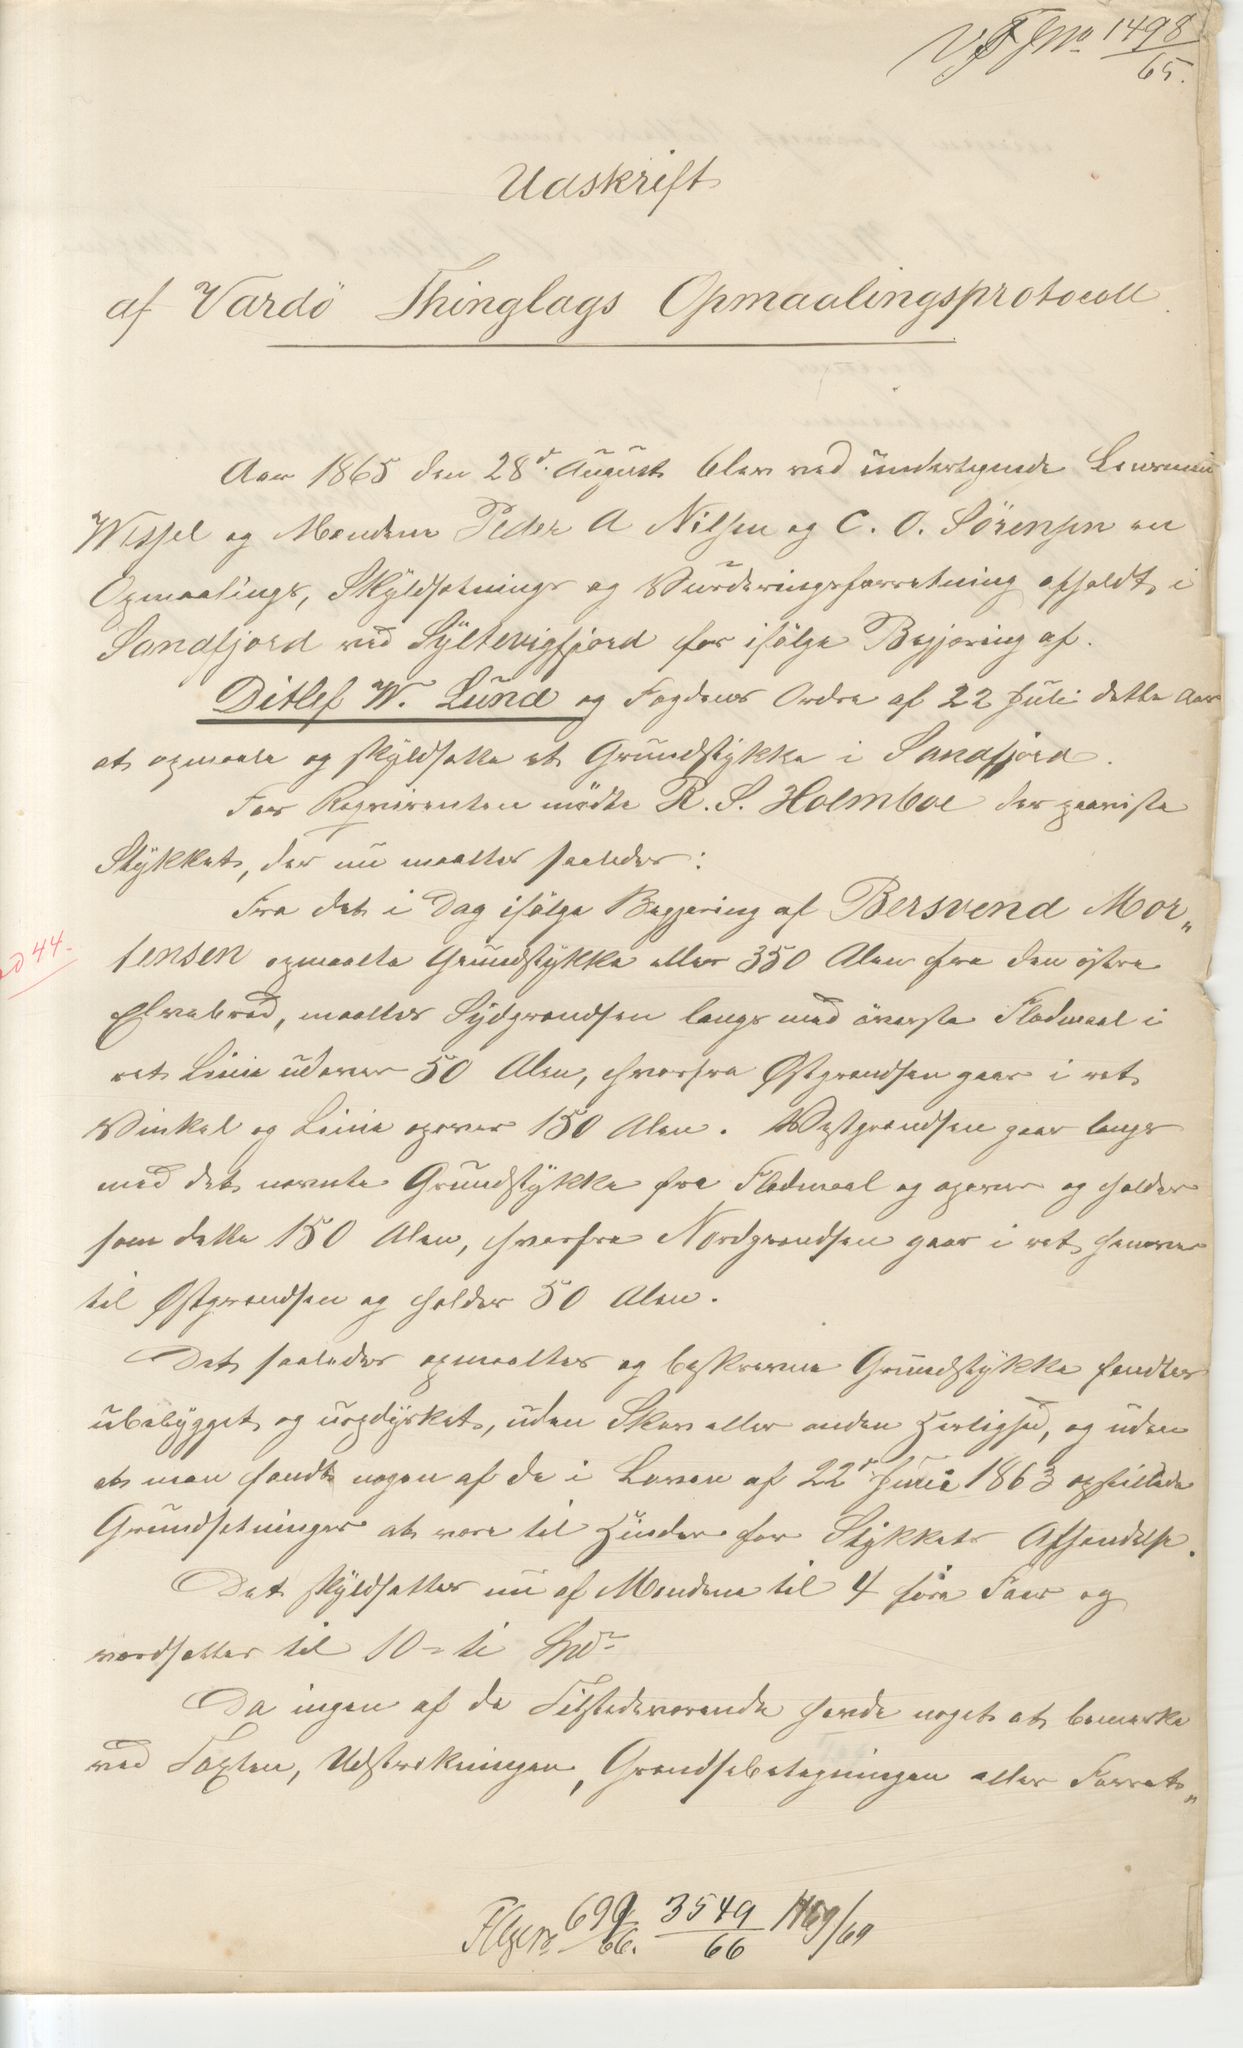 VfJNo 1498/65.
Udskrift
af Vardö Thinglags Opmaalingsprotocoll.
Aar 1865 den 28de August blev ved undertegnede Lensmand
Wessel og Mændene Peder A Nilsen og C. O. Sörensen en
Opmaalings, Skyldsætnings og Vurderingsforretning afholdt i
Sandfjord ved Syltevigfjord for ifölge Begjæring af.
Ditlef W. Lund og Fogdens Ordre af 22 Juli dette Aar
at opmaale og skyldsætte et Grundstykke i Sandfjord.
For Reqvirenten mödte R. S. Holmboe der paaviste
Stykket, der nu maaltes saaledes:
Fra det i Dag ifölge Begjæring af Bersvend Mor„
tensen opmaalte Grundstykke eller 350 Alen fra den östre
Elvebred, maaltes Sydgrændsen langs med överste Flodmaal i
ret Linie udover 50 Alen, hvorfra Østgrændsen gaar i ret
Vinkel og Linie opover 150 Alen. Vestgrændsen gaar langs
med det nævnte Grundstykke fra Flodmaal og opover og holder
som dette 150 Alen, hvorfra Nordgrændsen gaar i ret henover
til Østgrændsen og holder 50 Alen.
Det saaledes opmaaltes og beskrevne Grundstykke fandtes
ubebygget og uopdyrket, uden Skov eller anden Herlighed, og uden
at man fandt nogen af de i Loven af 22de Juni 1863 opstillede
Grundsætninger at være til Hinder for Stykkets Afhændelse.
Det skyldsattes nu af Mændene til 4 fire Faar og
værdsattes til 10 - ti Spd
Da ingen af de Tilstedeværende havde noget at bemærke
ved Taxten, Udstrækningen, Grændsebetegningen eller Forret„
44.
699/66. 3549/66 1169/69